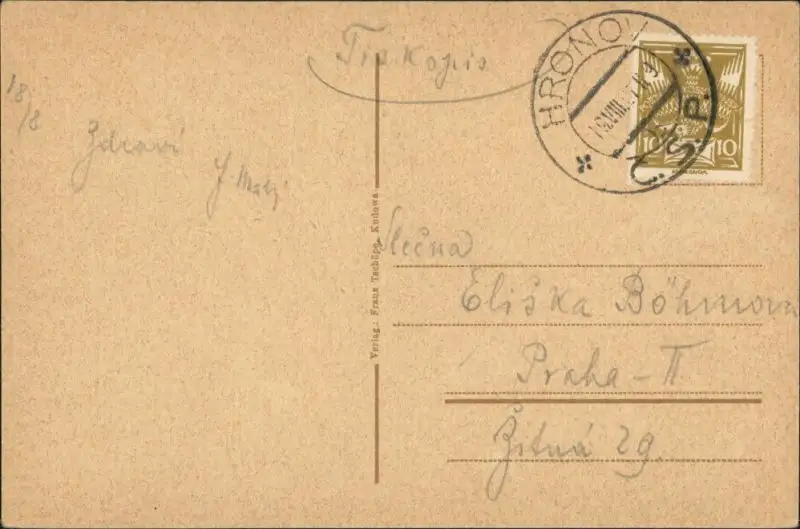 Tiskopis
18/8
Zdraví
J. Malý
HRONOV
Č.S.P.
10 10
Slečna
Eliška Böhmova
Praha-II
Žitná 29.
Verlag: Franz Tschöpe, Kudowa